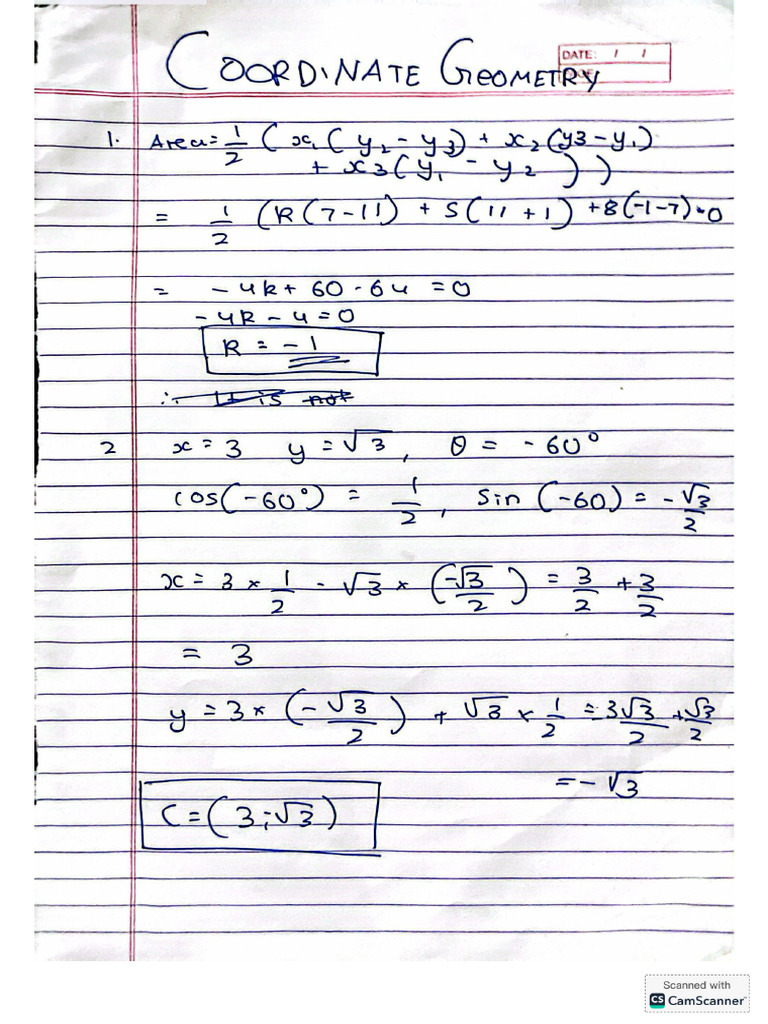 COORDINATE GEOMETRY
DATE: / /
1. Area = 1/2 ( x1 ( y2 - y3 ) + x2 ( y3 - y1 )
+ x3 ( y1 - y2 ) )
= 1/2 ( k ( 7 - 11 ) + 5 ( 11 + 1 ) + 8 ( -1 - 7 ) = 0
= - 4k + 60 - 64 = 0
- 4k - 4 = 0
k = - 1
∴ It is not
2 x = 3 y = √3 , θ = - 60°
cos ( -60° ) = 1/2 , sin ( -60 ) = - √3/2
x = 3 × 1/2 - √3 × ( -√3/2 ) = 3/2 + 3/2
= 3
y = 3 × ( - √3/2 ) + √3 × 1/2 = - 3√3/2 + √3/2
= - √3
C = ( 3, -√3 )
Scanned with
CS CamScanner